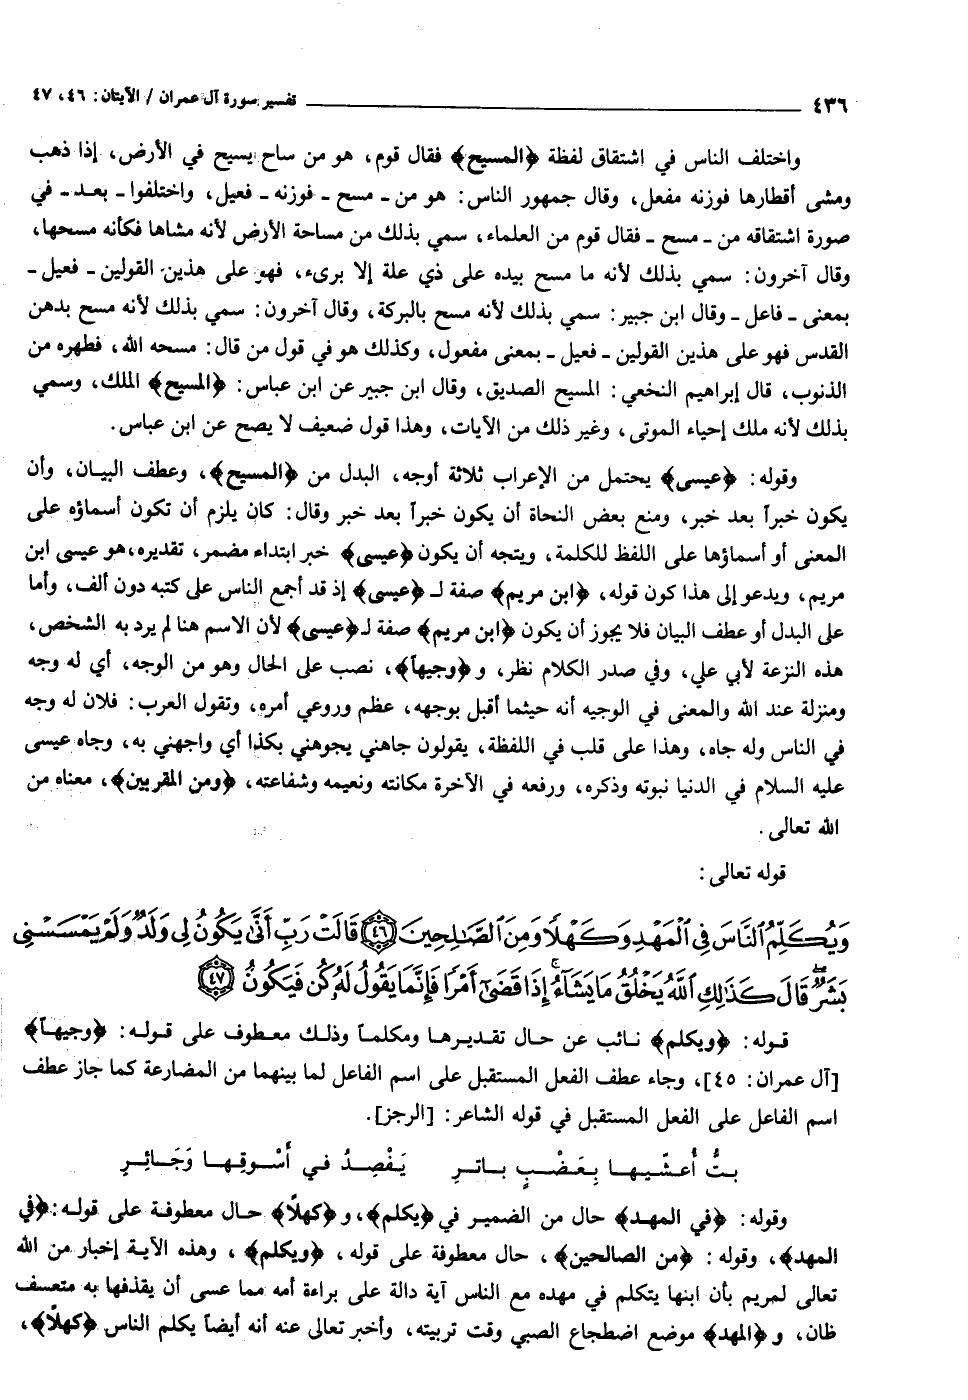 ٤٣٦ تفسير سورة آل عمران / الآيتان: ٤٦، ٤٧
واختلف الناس في اشتقاق لفظة ﴿المسيح﴾ فقال قوم، هو من ساح يسيح في الأرض، إذا ذهب
ومشى أقطارها فوزنه مفعل، وقال جمهور الناس: هو من ـ مسح ـ فوزنه ـ فعيل، واختلفوا ـ بعد ـ في
صورة اشتقاقه من ـ مسح ـ فقال قوم من العلماء، سمي بذلك من مساحة الأرض لأنه مشاها فكأنه مسحها،
وقال آخرون: سمي بذلك لأنه ما مسح بيده على ذي علة إلا برىء، فهو على هذين القولين ـ فعيل ـ
بمعنى ـ فاعل ـ وقال ابن جبير: سمي بذلك لأنه مسح بالبركة، وقال آخرون: سمي بذلك لأنه مسح بدهن
القدس فهو على هذين القولين ـ فعيل ـ بمعنى مفعول، وكذلك هو في قول من قال: مسحه الله، فطهره من
الذنوب، قال إبراهيم النخعي: المسيح الصديق، وقال ابن جبير عن ابن عباس: ﴿المسيح﴾ الملك، وسمي
بذلك لأنه ملك إحياء الموتى، وغير ذلك من الآيات، وهذا قول ضعيف لا يصح عن ابن عباس.
وقوله: ﴿عيسى﴾ يحتمل من الإعراب ثلاثة أوجه، البدل من ﴿المسيح﴾، وعطف البيان، وأن
يكون خبراً بعد خبر، ومنع بعض النحاة أن يكون خبراً بعد خبر وقال: كان يلزم أن تكون أسماؤه على
المعنى أو أسماؤها على اللفظ للكلمة، ويتجه أن يكون ﴿عيسى﴾ خبر ابتداء مضمر، تقديره، هو عيسى ابن
مريم، ويدعو إلى هذا كون قوله، ﴿ابن مريم﴾ صفة لـ ﴿عيسى﴾ إذ قد أجمع الناس على كتبه دون ألف، وأما
على البدل أو عطف البيان فلا يجوز أن يكون ﴿ابن مريم﴾ صفة لـ ﴿عيسى﴾ لأن الاسم هنا لم يرد به الشخص،
هذه النزعة لأبي علي، وفي صدر الكلام نظر، و ﴿وجيهاً﴾، نصب على الحال وهو من الوجه، أي له وجه
ومنزلة عند الله والمعنى في الوجيه أنه حيثما أقبل بوجهه، عظم وروعي أمره، وتقول العرب: فلان له وجه
في الناس وله جاه، وهذا على قلب في اللفظة، يقولون جاهني يجوهني بكذا أي واجهني به، وجاه عيسى
عليه السلام في الدنيا نبوته وذكره، ورفعه في الآخرة مكانته ونعيمه وشفاعته، ﴿ومن المقربين﴾، معناه من
الله تعالى.
قوله تعالى:
وَيُكَلِّمُ ٱلنَّاسَ فِي ٱلْمَهْدِ وَكَهْلًا وَمِنَ ٱلصَّٰلِحِينَ ﴿٤٦﴾ قَالَتْ رَبِّ أَنَّىٰ يَكُونُ لِي وَلَدٌ وَلَمْ يَمْسَسْنِي
بَشَرٌ ۖ قَالَ كَذَٰلِكِ ٱللَّهُ يَخْلُقُ مَا يَشَآءُ ۚ إِذَا قَضَىٰٓ أَمْرًا فَإِنَّمَا يَقُولُ لَهُۥ كُن فَيَكُونُ ﴿٤٧﴾
قوله: ﴿ويكلم﴾ نائب عن حال تقديرها ومكلماً وذلك معطوف على قوله: ﴿وجيهاً﴾
[آل عمران: ٤٥]، وجاء عطف الفعل المستقبل على اسم الفاعل لما بينهما من المضارعة كما جاز عطف
اسم الفاعل على الفعل المستقبل في قوله الشاعر: [الرجز].
بتُّ أُعشّيها بِعَضْبٍ باترِ يَفْصِدُ في أَسْوقِها وَجَائِرِ
وقوله: ﴿في المهد﴾ حال من الضمير في ﴿يكلم﴾، و ﴿كهلاً﴾ حال معطوفة على قوله: ﴿في
المهد﴾، وقوله: ﴿من الصالحين﴾، حال معطوفة على قوله، ﴿ويكلم﴾، وهذه الآية إخبار من الله
تعالى لمريم بأن ابنها يتكلم في مهده مع الناس آية دالة على براءة أمه مما عسى أن يقذفها به متعسف
ظان، و ﴿المهد﴾ موضع اضطجاع الصبي وقت تربيته، وأخبر تعالى عنه أنه أيضاً يكلم الناس ﴿كهلاً﴾،